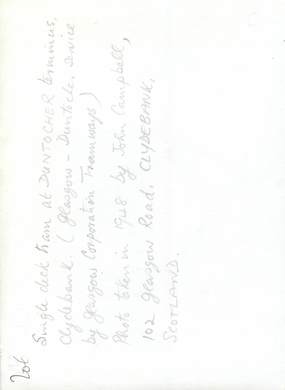 Single deck tram at DUNTOCHER terminus,
Clydebank. (Glasgow - Duntocher service
by Glasgow Corporation Tramways)
Photo taken in 1948 by John Campbell,
102 Glasgow Road, CLYDEBANK,
SCOTLAND.